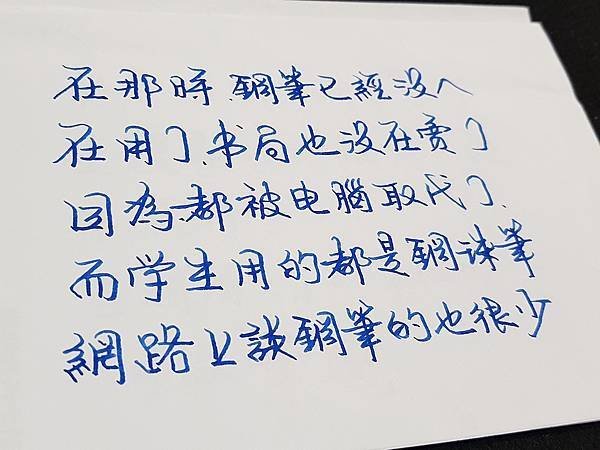 在那時.鋼筆已經沒人
在用了.书局也沒在賣了
因為都被电腦取代了.
而学生用的都是鋼珠筆
網路上談鋼筆的也很少